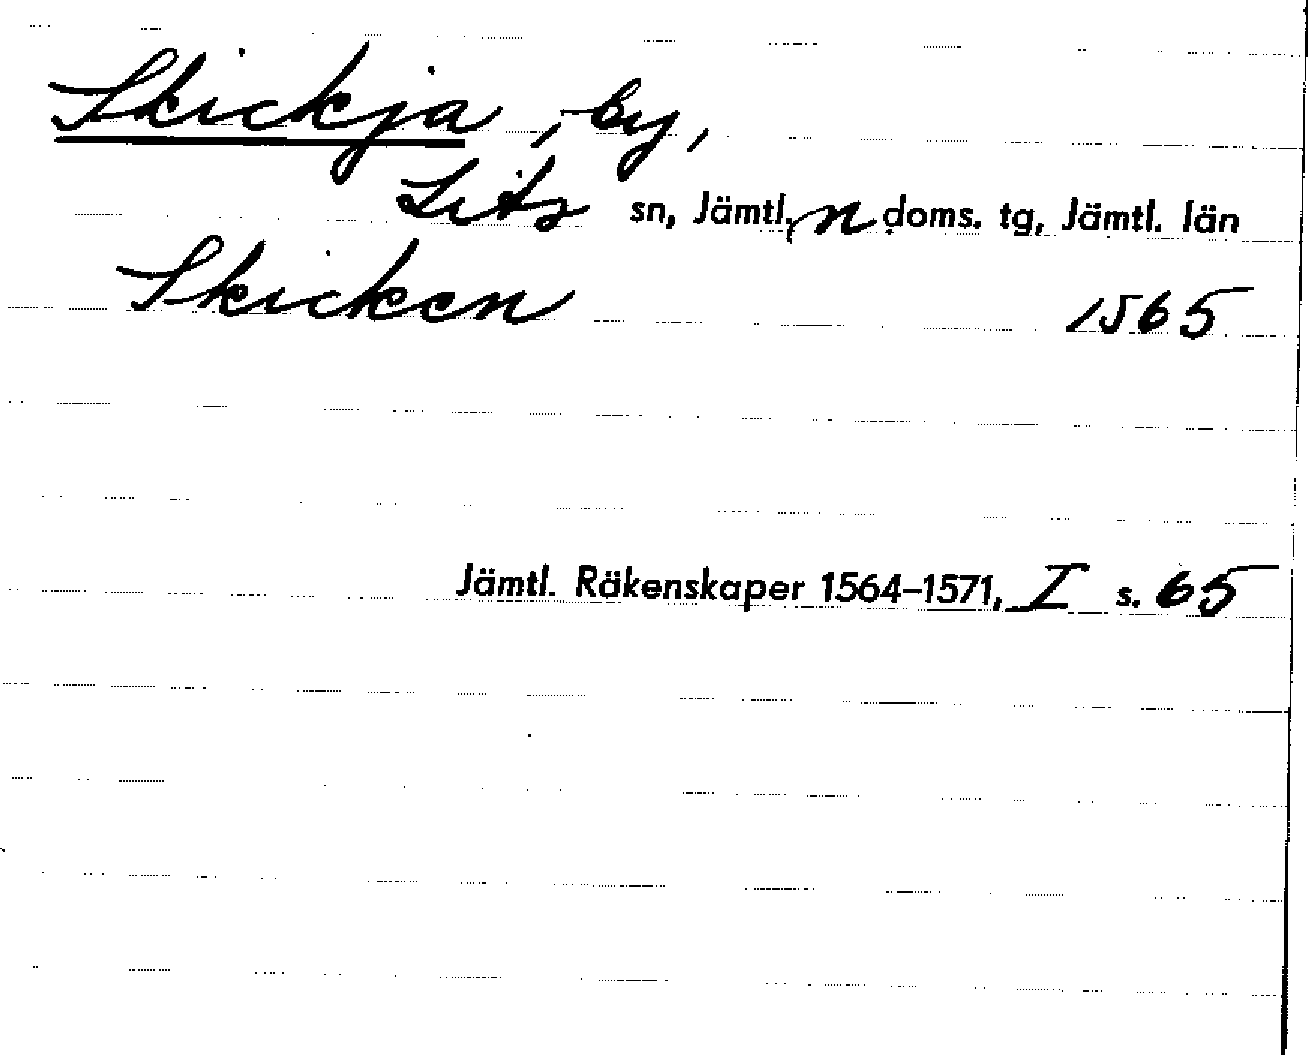 Skickja, by,
Lits sn, Jämtl, n doms. tg, Jämtl. län
Skicken 1565
Jämtl. Räkenskaper 1564–1571, I s. 65